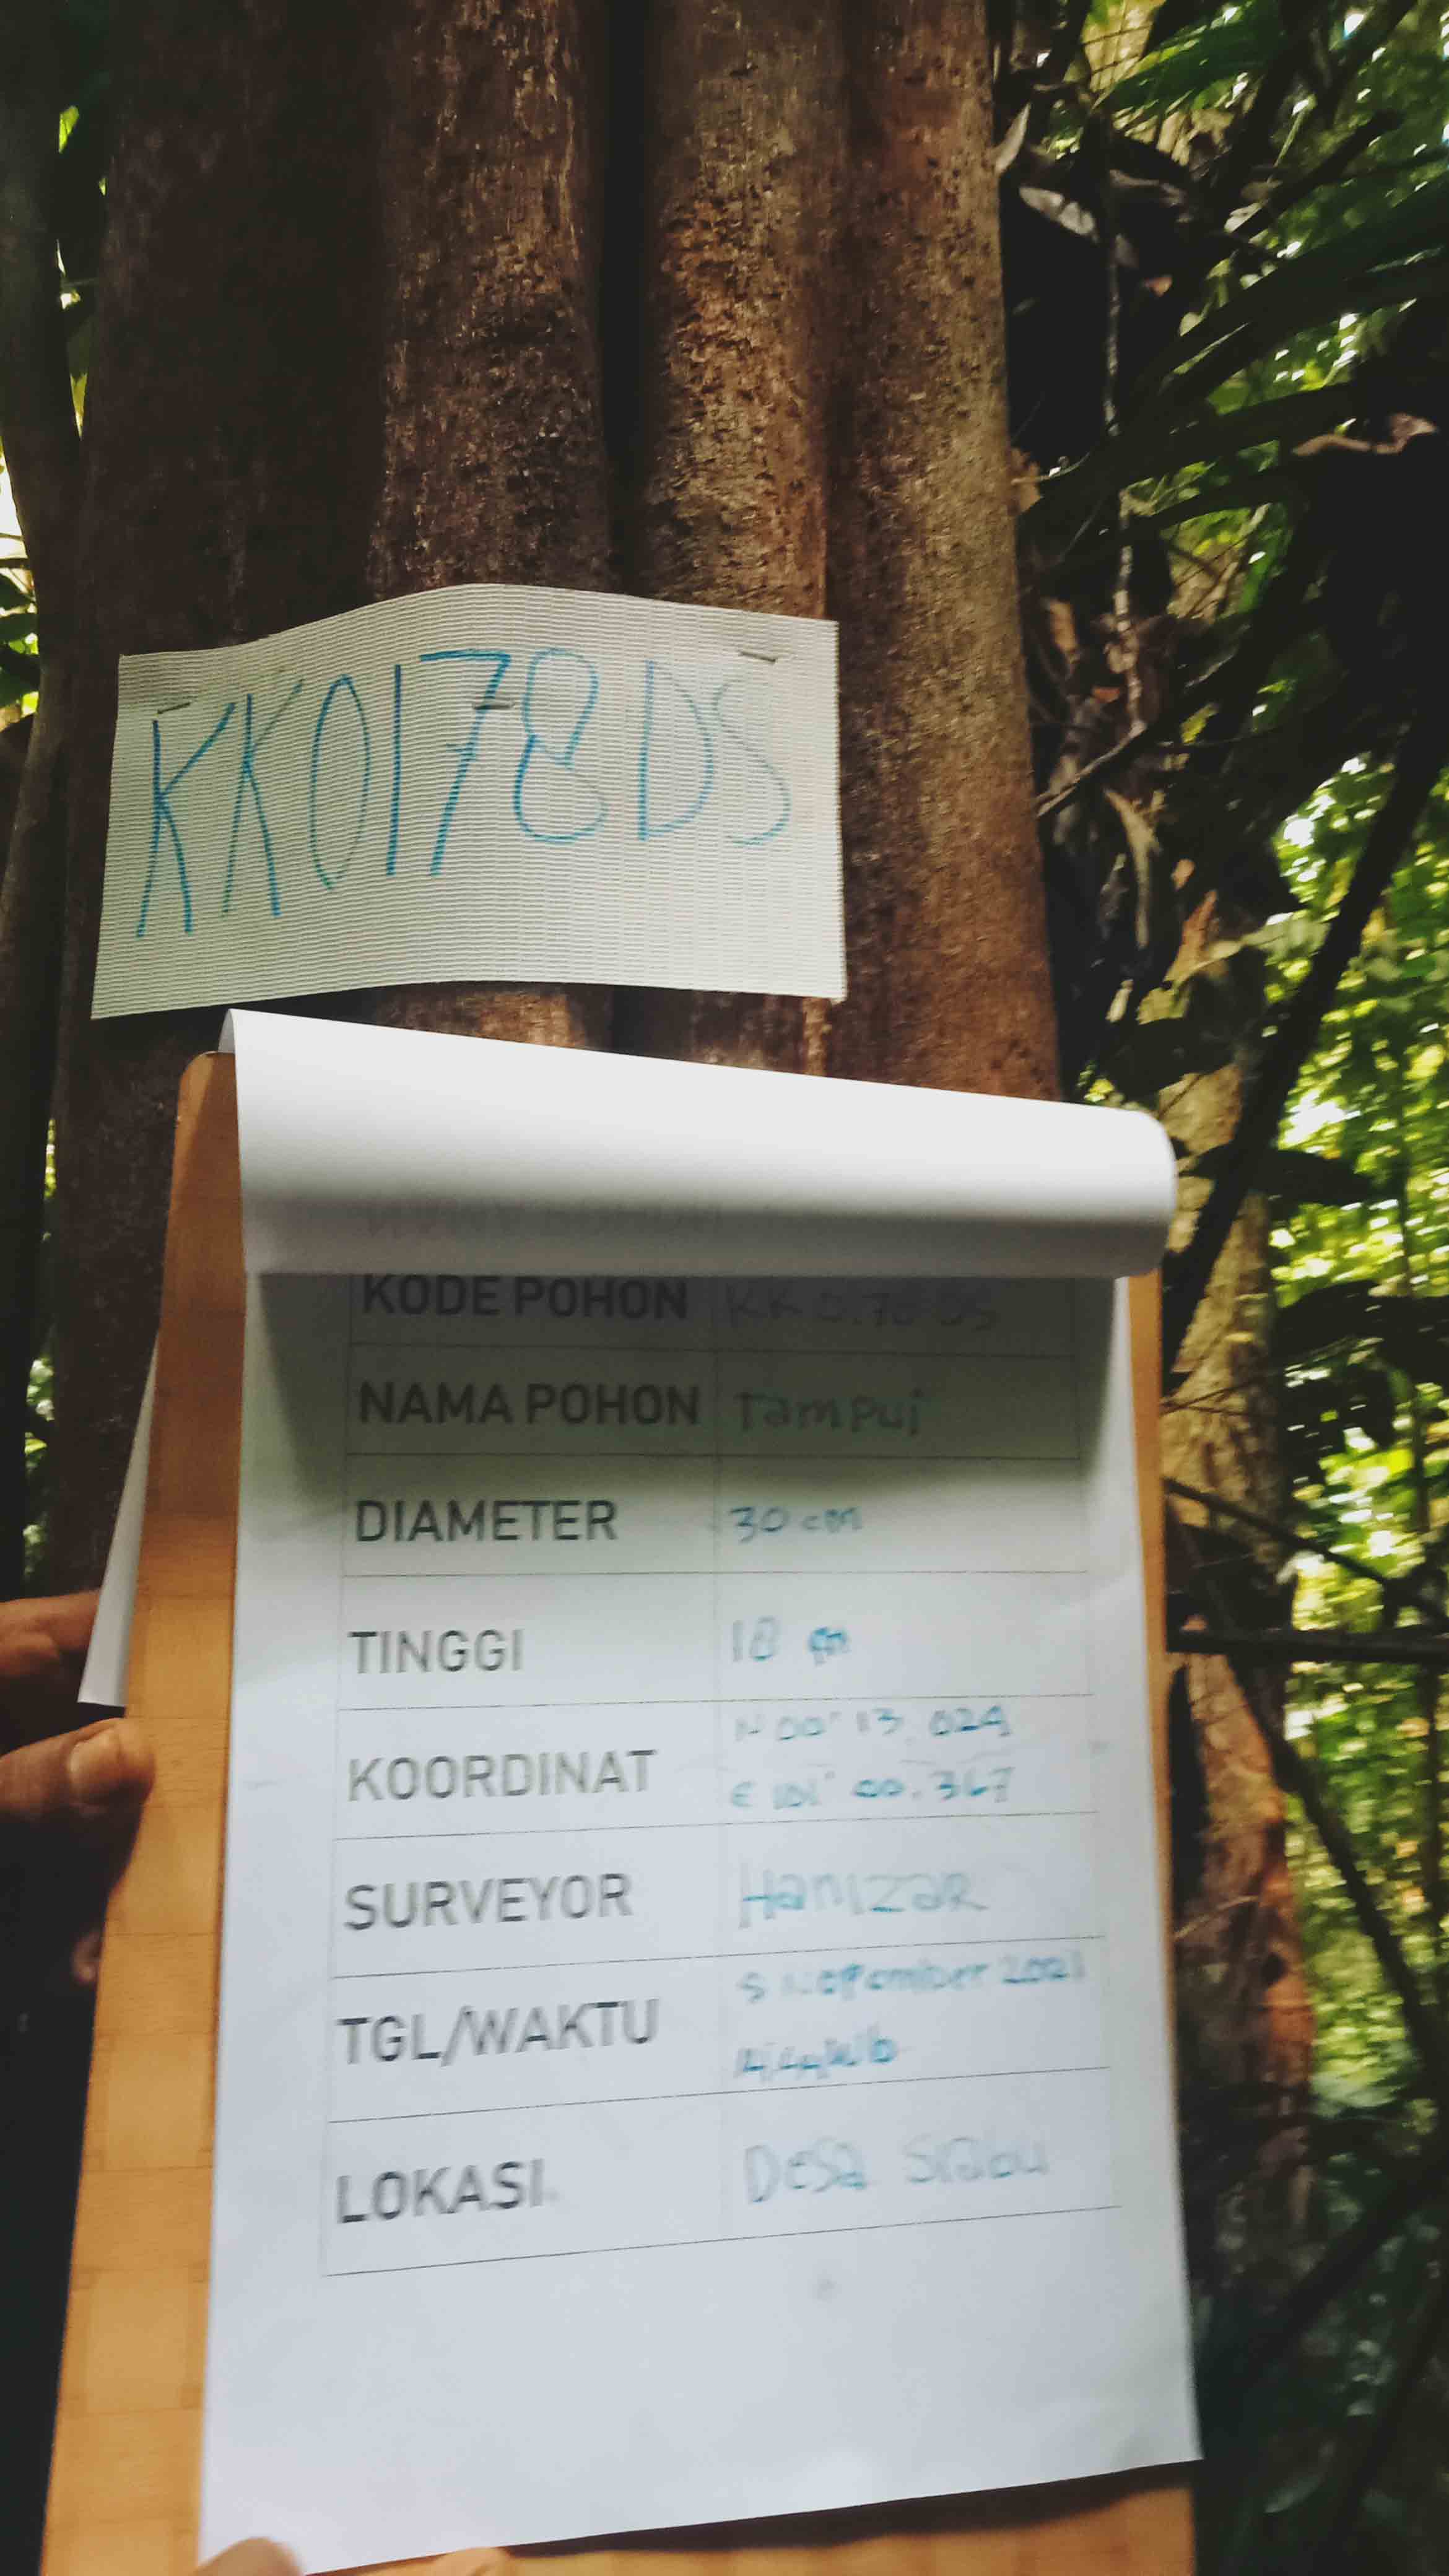 KK0178DS
KODE POHON KK 0178 DS
NAMA POHON Tampui
DIAMETER 30 cm
TINGGI 18 m
KOORDINAT N 00° 13. 024
E 101° 00. 367
SURVEYOR Hamizar
TGL/WAKTU 5 Nofember 2021
LOKASI Desa Siabu